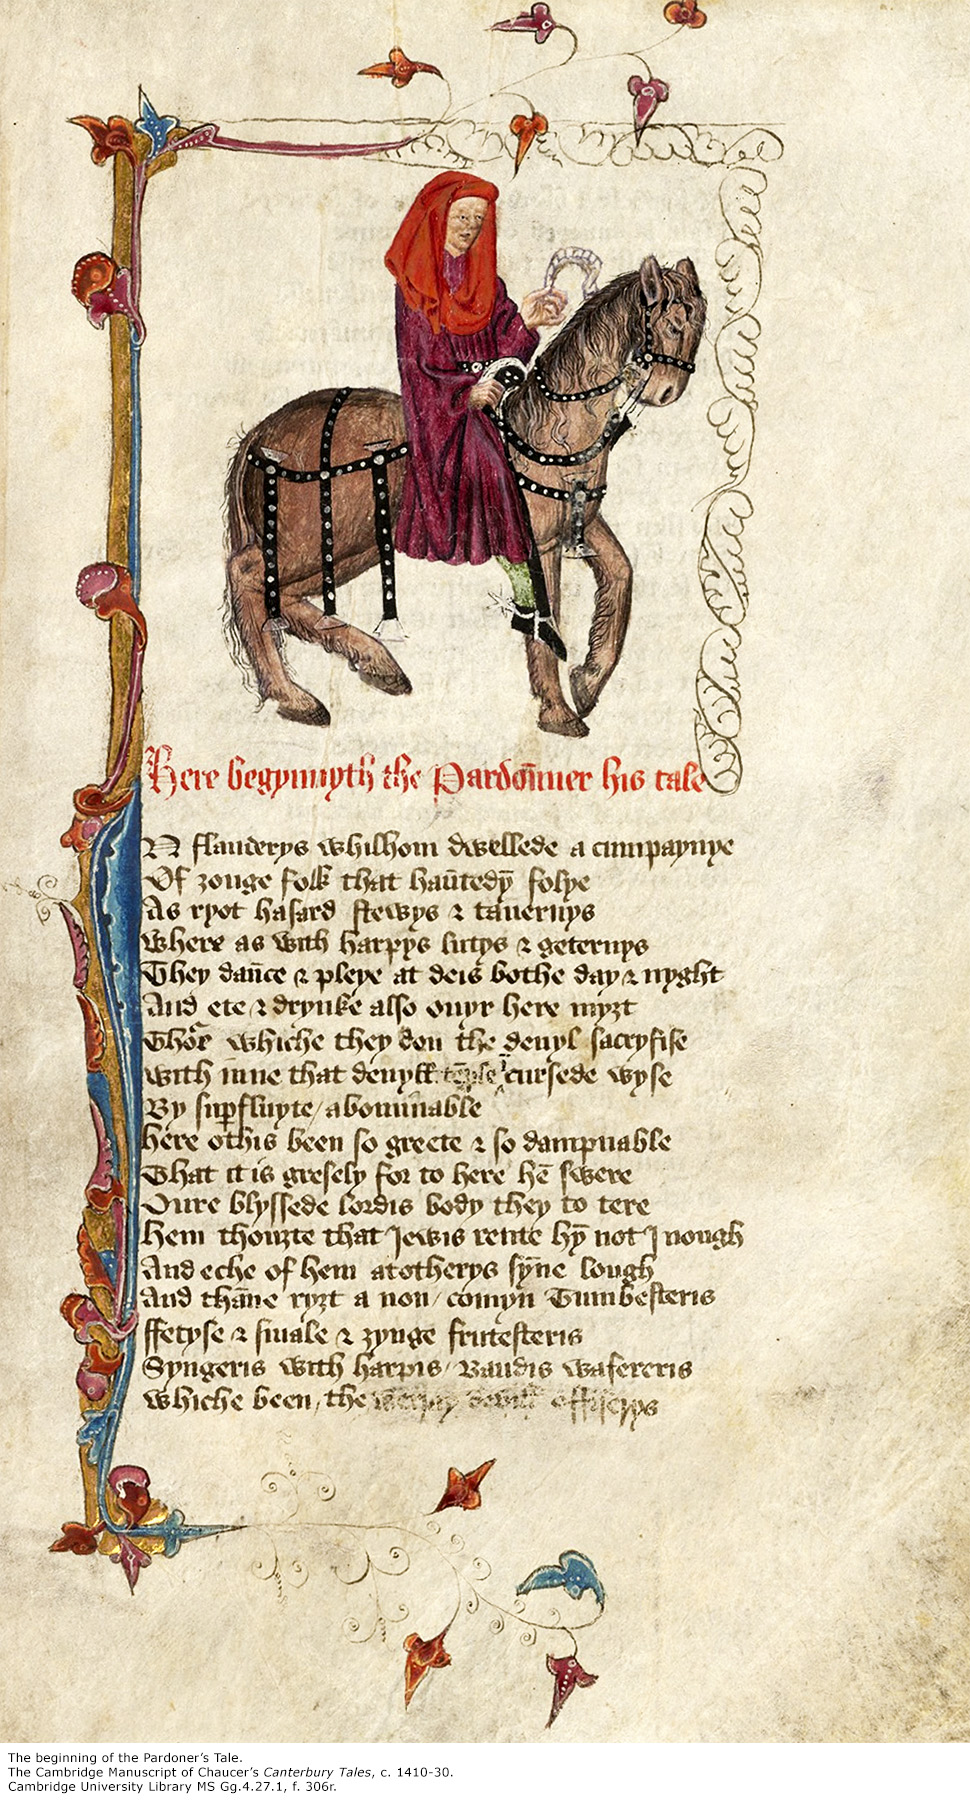 Here begynnyth the Pardoner his tale
N flanderys whilhom dwellede a cumpaynye
Of ȝonge folk that hauntedyn folye
As ryot hasard stewys & tauernys
Where as with harpys lutys & geternys
They daunce & pleye at deis bothe day & nyght
And ete & drynke also ouyr here myȝt
Thour whiche they don the deuyl sacryfise
With inne that deuyll cursede wyse
By supfluyte / abominable
Here othis been so greete & so dampnable
That it is gresely for to here hē swere
Oure blyssede lordis body they to tere
Hem thouȝte that Jewis rente hȳ not Inough
And eche of hem at otherys synne lough
And thāne ryȝt a non / comyn Tumbesteris
ffetyse & smale & ȝynge frutesteris
Syngeris with harpis / Baudis wafereris
Whiche been / the deuyll offiserys
The beginning of the Pardoner’s Tale.
The Cambridge Manuscript of Chaucer’s Canterbury Tales, c. 1410-30.
Cambridge University Library MS Gg.4.27.1, f. 306r.